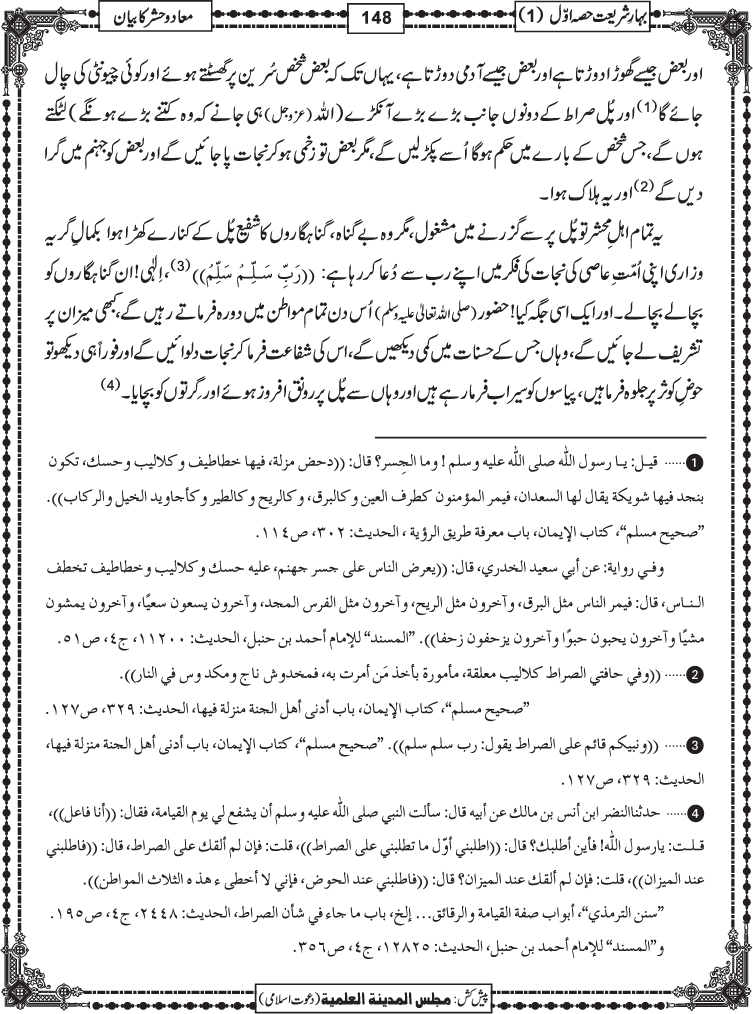 بہارِ شریعت حصہ اوّل (1)
148
معاد و حشر کا بیان
اور بعض جیسے گھوڑا دوڑتا ہے اور بعض جیسے آدمی دوڑتا ہے، یہاں تک کہ بعض شخص سُرین پر گھسٹتے ہوئے اور کوئی چیونٹی کی چال
جائے گا(1) اور پُل صراط کے دونوں جانب بڑے بڑے آنکڑے (اللہ (عزوجل) ہی جانے کہ وہ کتنے بڑے ہونگے) لٹکتے
ہوں گے، جس شخص کے بارے میں حکم ہوگا اُسے پکڑ لیں گے، مگر بعض تو زخمی ہو کر نجات پا جائیں گے اور بعض کو جہنم میں گرا
دیں گے(2) اور یہ ہلاک ہوا۔
یہ تمام اہلِ محشر تو پُل پر سے گزرنے میں مشغول، مگر وہ بے گناہ، گناہگاروں کا شفیع پُل کے کنارے کھڑا ہوا بکمالِ گریہ
وزاری اپنی اُمّتِ عاصی کی نجات کی فکر میں اپنے رب سے دُعا کر رہا ہے: ((رَبِّ سَلِّمْ سَلِّمْ))(3)، اِلٰہی! ان گناہگاروں کو
بچالے بچالے۔ اور ایک اسی جگہ کیا! حضور (صلی اللہ تعالیٰ علیہ وسلم) اُس دن تمام مواطن میں دورہ فرماتے رہیں گے، کبھی میزان پر
تشریف لے جائیں گے، وہاں جس کے حسنات میں کمی دیکھیں گے، اس کی شفاعت فرما کر نجات دلوائیں گے اور فوراً ہی دیکھو تو
حوضِ کوثر پر جلوہ فرما ہیں، پیاسوں کو سیراب فرما رہے ہیں اور وہاں سے پُل پر رونق افروز ہوئے اور گِرتوں کو بچایا۔ (4)
1...... قيل: يا رسول الله صلى الله عليه وسلم ! وما الجِسر؟ قال: ((دحض مزلة، فيها خطاطيف وكلاليب وحسك، تكون
بنجد فيها شويكة يقال لها السعدان، فيمر المؤمنون كطرف العين وكالبرق، وكالريح وكالطير وكأجاويد الخيل والركاب)).
”صحيح مسلم“، كتاب الإيمان، باب معرفة طريق الرؤية ، الحديث: ٣٠٢، ص١١٤.
وفي رواية: عن أبي سعيد الخدري، قال: ((يعرض الناس على جسر جهنم، عليه حسك وكلاليب وخطاطيف تخطف
الناس، قال: فيمر الناس مثل البرق، وآخرون مثل الريح، وآخرون مثل الفرس المجد، وآخرون يسعون سعيًا، وآخرون يمشون
مشيًا وآخرون يحبون حبوًا وآخرون يزحفون زحفا)). ”المسند“ للإمام أحمد بن حنبل، الحديث: ١١٢٠٠، ج٤، ص٥١.
2...... ((وفي حافتي الصراط كلاليب معلقة، مأمورة بأخذ مَن أمرت به، فمخدوش ناج ومكدوس في النار)).
”صحيح مسلم“، كتاب الإيمان، باب أدنى أهل الجنة منزلة فيها، الحديث: ٣٢٩، ص١٢٧.
3...... ((ونبيكم قائم على الصراط يقول: رب سلم سلم)). ”صحيح مسلم“، كتاب الإيمان، باب أدنى أهل الجنة منزلة فيها،
الحديث: ٣٢٩، ص١٢٧.
4...... حدثنا النضر ابن أنس بن مالك عن أبيه قال: سألت النبي صلى الله عليه وسلم أن يشفع لي يوم القيامة، فقال: ((أنا فاعل))،
قلت: يارسول الله! فأين أطلبك؟ قال: ((اطلبني أوّل ما تطلبني على الصراط))، قلت: فإن لم ألقك على الصراط، قال: ((فاطلبني
عند الميزان))، قلت: فإن لم ألقك عند الميزان؟ قال: ((فاطلبني عند الحوض، فإني لا أخطىء هذه الثلاث المواطن)).
”سنن الترمذي“، أبواب صفة القيامة والرقائق... إلخ، باب ما جاء في شأن الصراط، الحديث: ٢٤٤٨، ج٤، ص١٩٥.
و”المسند“ للإمام أحمد بن حنبل، الحديث: ١٢٨٢٥، ج٤، ص٣٥٦.
پیش کش: مجلس المدینة العلمیة (دعوتِ اسلامی)